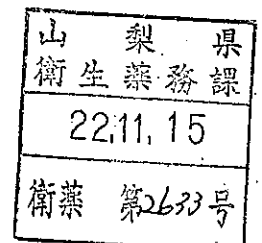 山梨県
衛生薬務課
22.11.15
衛薬 第2633号